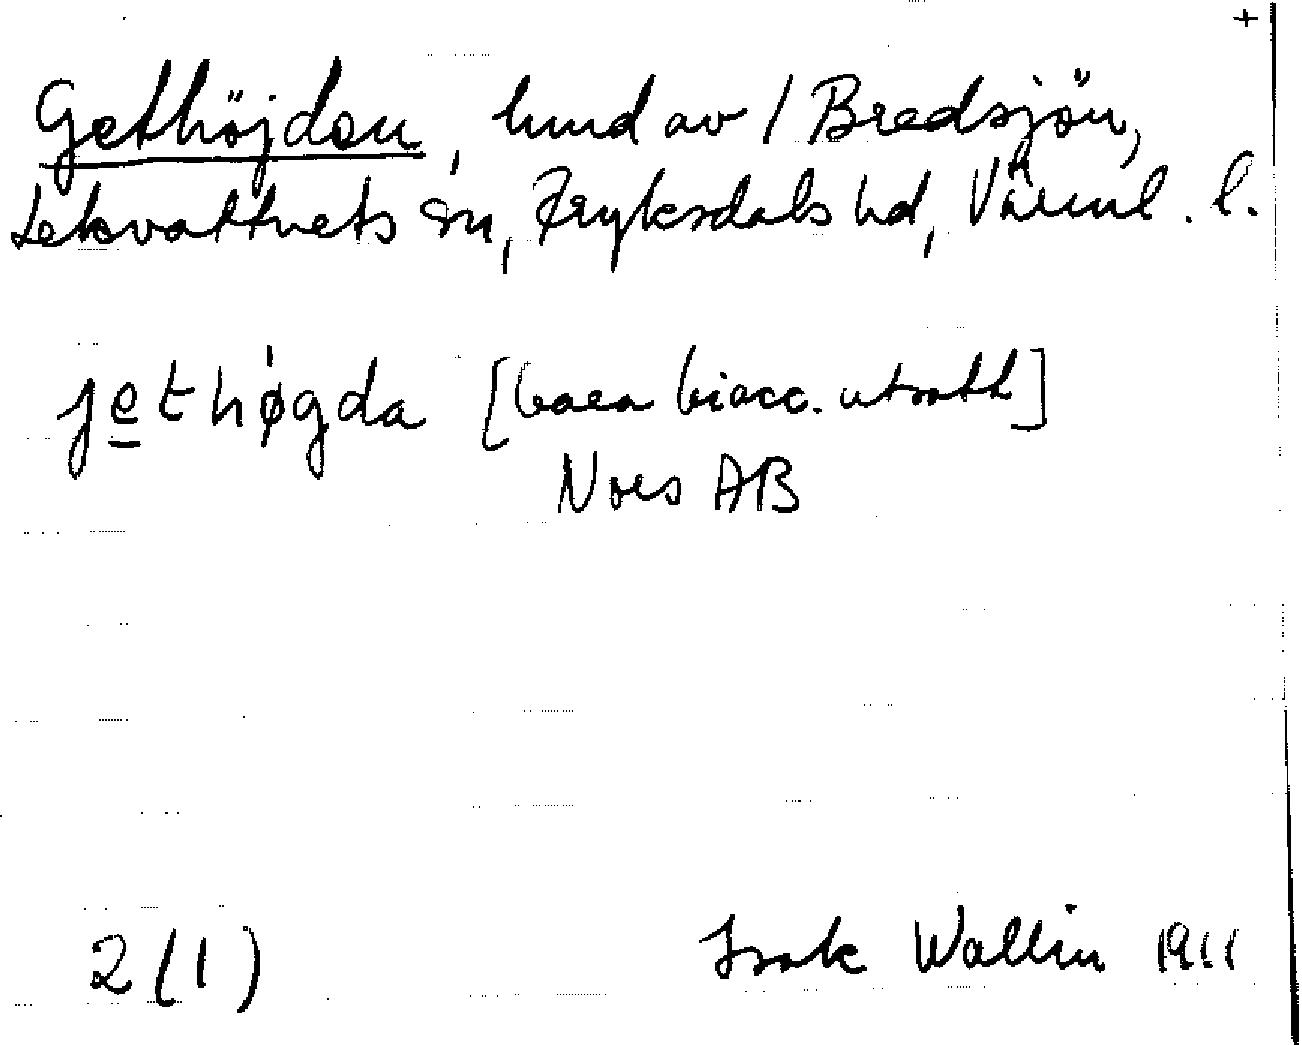 +
Gethöjden, hmd av / Bredsjön,
Lekvattnets sn, Fryksdals hd, Värml. l.
jethøgda [bara biacc. utsatt]
Nors AB
2 (1) Isak Wallin 1911